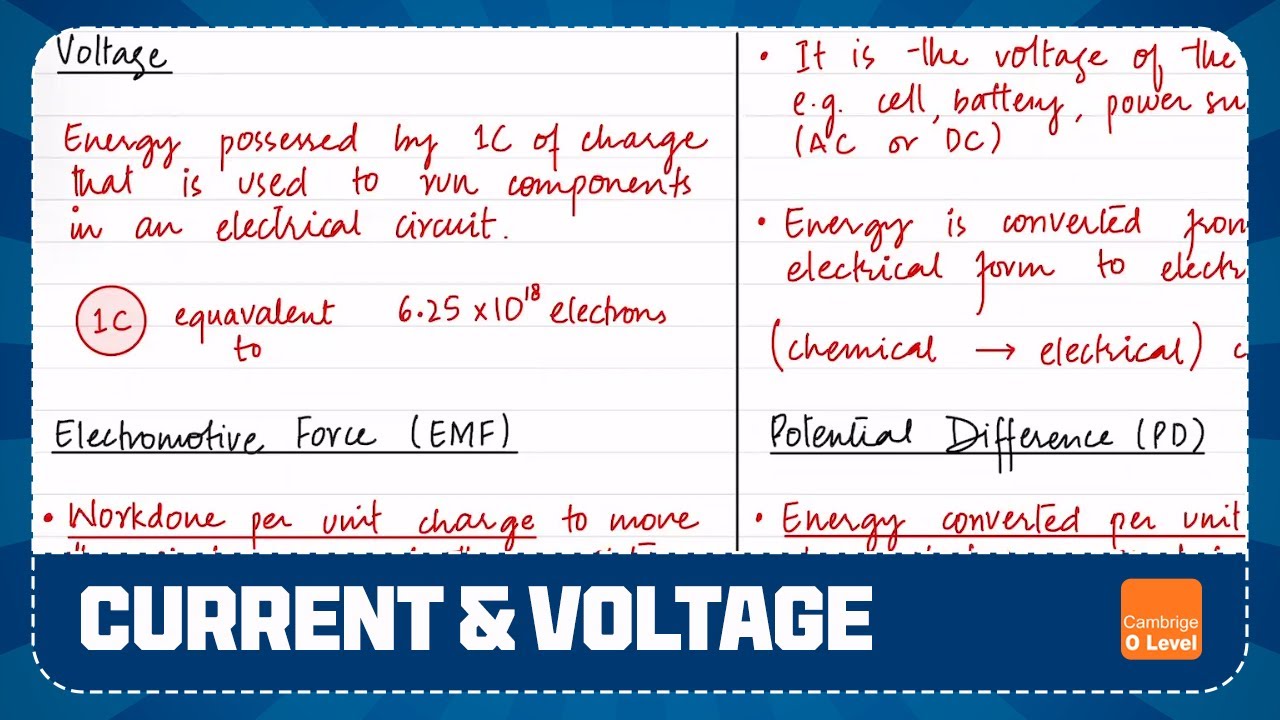 Voltage
Energy possessed by 1C of charge
that is used to run components
in an electrical circuit.
1C equavalent 6.25 x 10¹⁸ electrons
to
Electromotive Force (EMF)
• Workdone per unit charge to move
• It is the voltage of the
e.g. cell, battery, power su
(AC or DC)
• Energy is converted from
electrical form to electr
(chemical → electrical)
Potential Difference (PD)
• Energy converted per unit
CURRENT & VOLTAGE
Cambrige
O Level